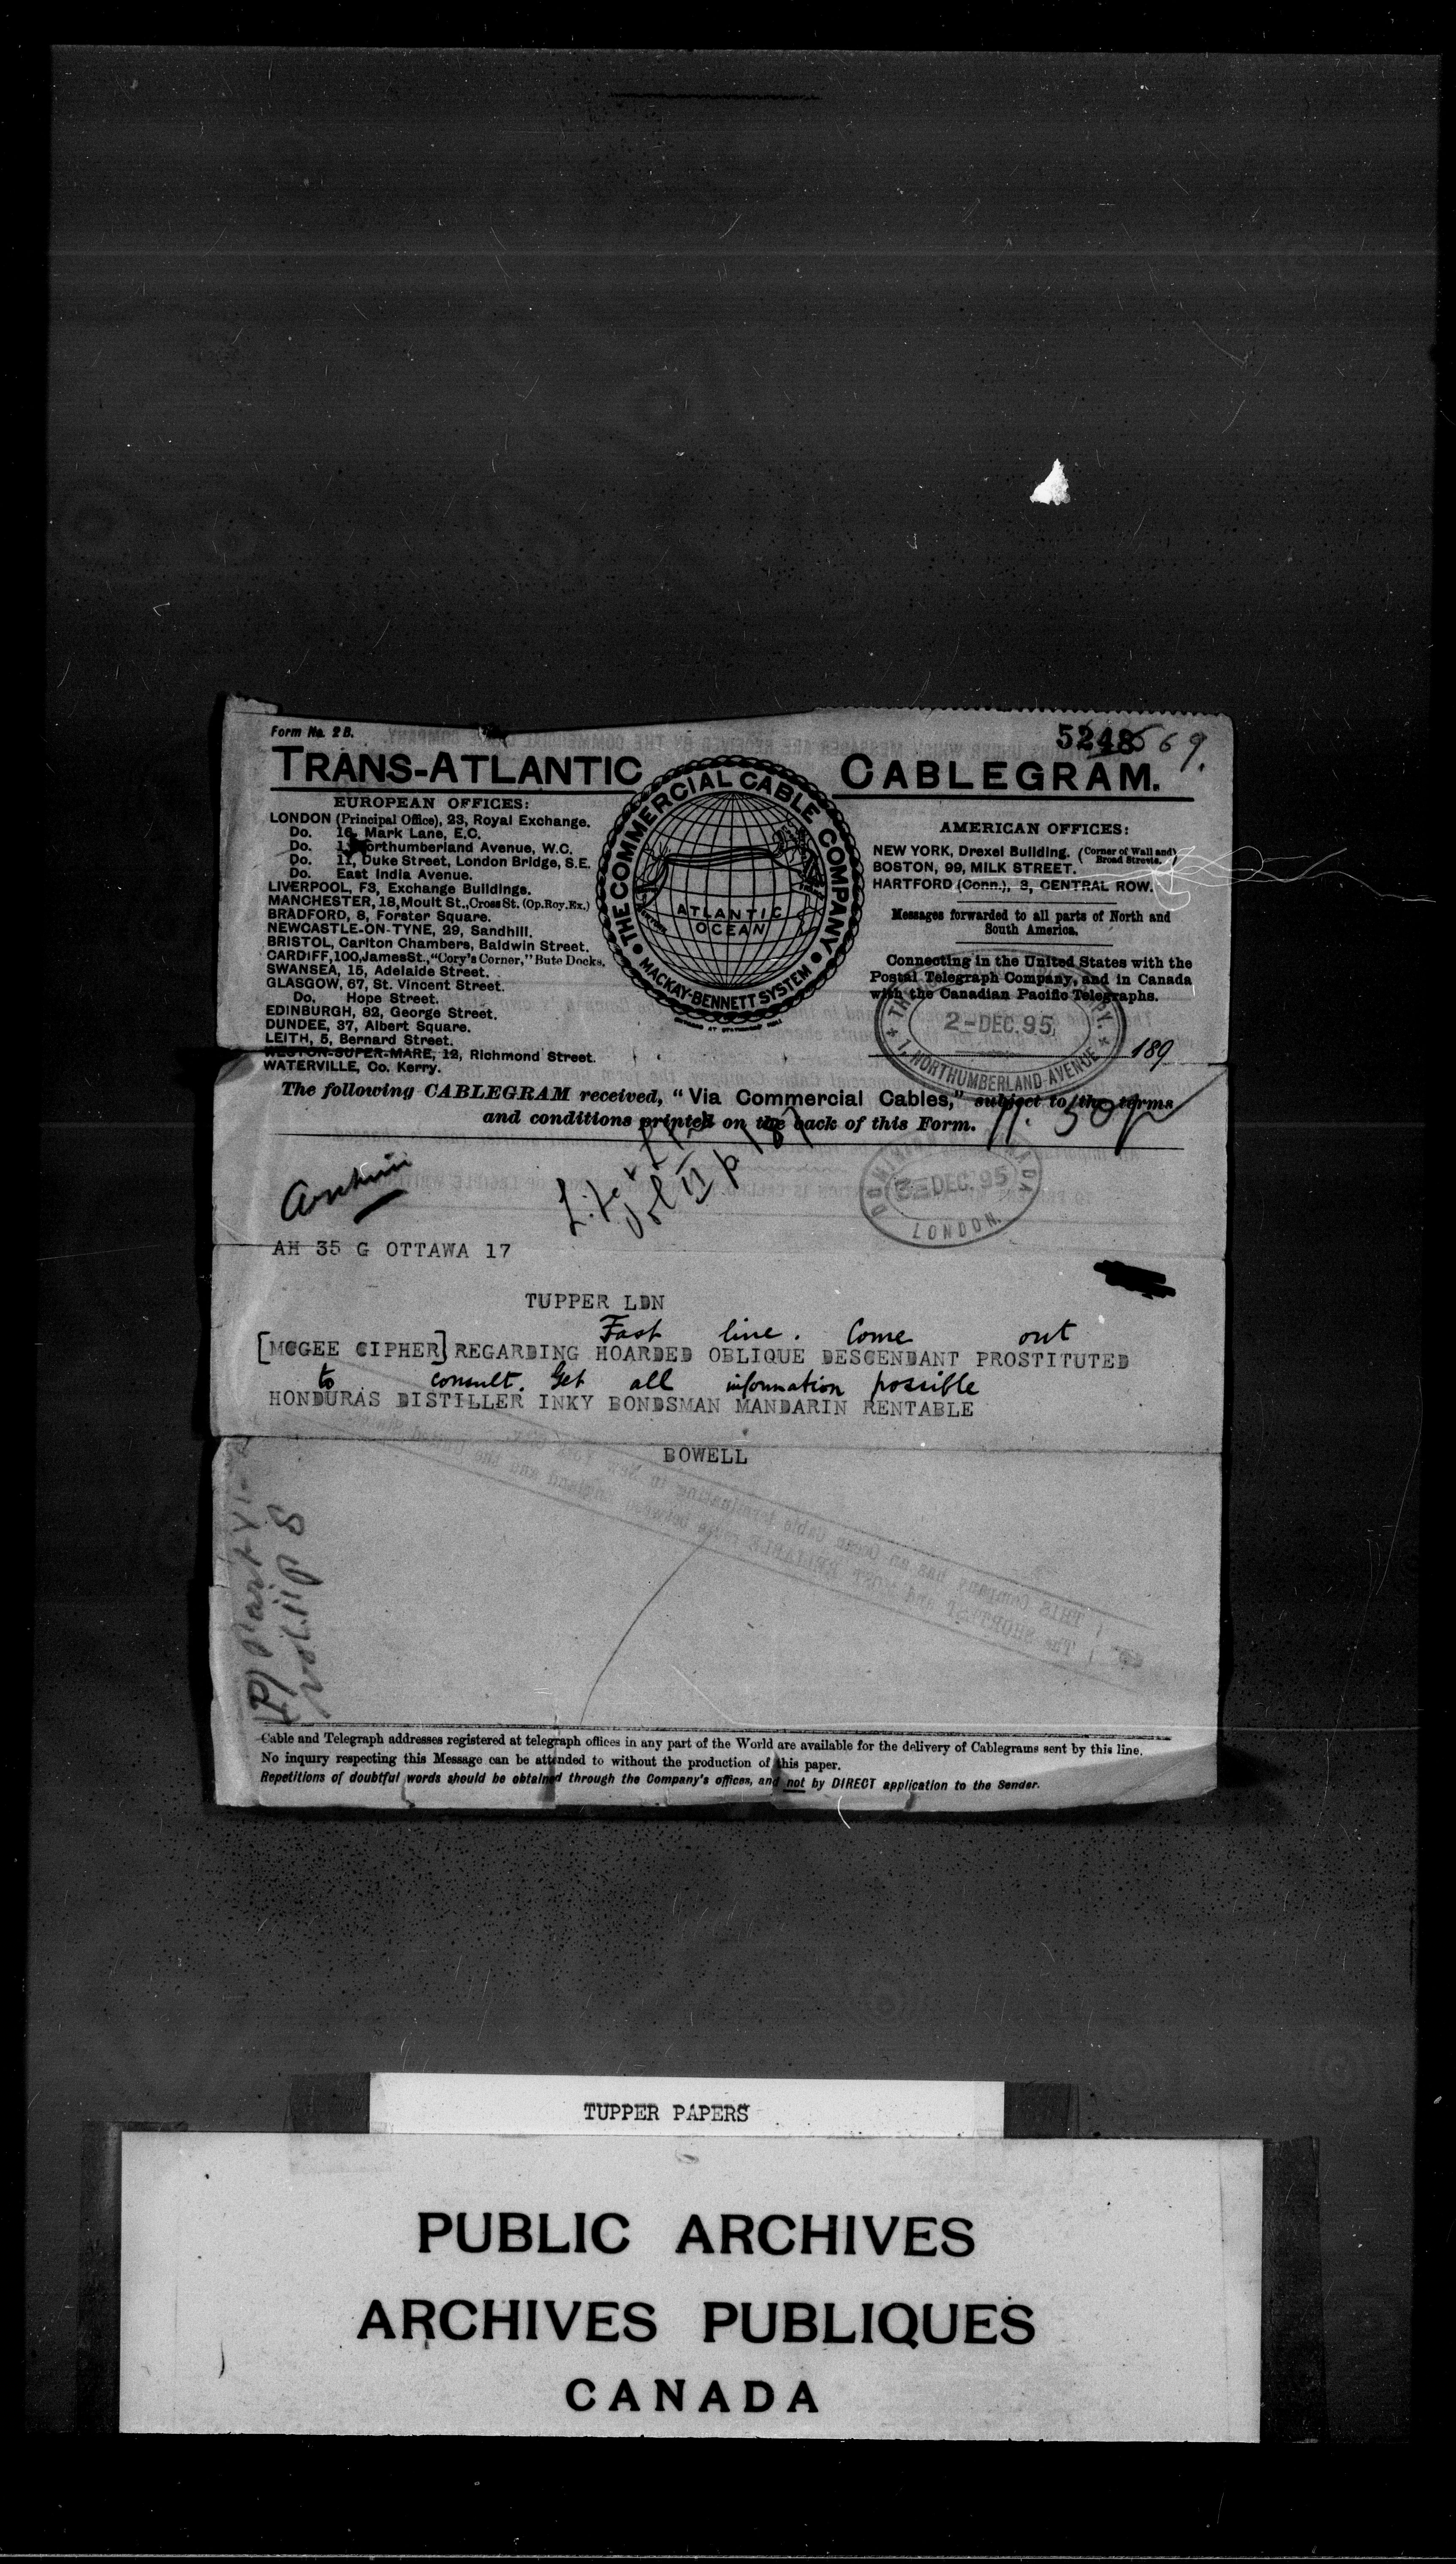 Form No. 2 B.
5248
569.
TRANS-ATLANTIC CABLEGRAM.
THE COMMERCIAL CABLE COMPANY
MACKAY-BENNETT SYSTEM
ATLANTIC
OCEAN
EUROPEAN OFFICES:
LONDON (Principal Office), 23, Royal Exchange.
Do. 16, Mark Lane, E.C.
Do. Northumberland Avenue, W.C.
Do. 11, Duke Street, London Bridge, S.E.
Do. East India Avenue.
LIVERPOOL, F3, Exchange Buildings.
MANCHESTER, 18, Moult St., Cross St. (Op. Roy. Ex.)
BRADFORD, 8, Forster Square.
NEWCASTLE-ON-TYNE, 29, Sandhill.
BRISTOL, Carlton Chambers, Baldwin Street.
CARDIFF, 100, James St., "Cory's Corner," Bute Docks.
SWANSEA, 15, Adelaide Street.
GLASGOW, 67, St. Vincent Street.
Do. Hope Street.
EDINBURGH, 82, George Street.
DUNDEE, 37, Albert Square.
LEITH, 5, Bernard Street.
WESTON-SUPER-MARE, 12, Richmond Street.
WATERVILLE, Co. Kerry.
AMERICAN OFFICES:
NEW YORK, Drexel Building. (Corner of Wall and Broad Streets.)
BOSTON, 99, MILK STREET.
HARTFORD (Conn.), 3, CENTRAL ROW.
Messages forwarded to all parts of North and
South America.
Connecting in the United States with the
Postal Telegraph Company, and in Canada
with the Canadian Pacific Telegraphs.
2-DEC.95
1, NORTHUMBERLAND-AVENUE
189
The following CABLEGRAM received, "Via Commercial Cables," subject to the terms
and conditions printed on the back of this Form.
DEC.95
LONDON.
AH 35 G OTTAWA 17
TUPPER LDN
Fast line. Come out
[MCGEE CIPHER] REGARDING HOARDED OBLIQUE DESCENDANT PROSTITUTED
to consult. Get all information possible
HONDURAS DISTILLER INKY BONDSMAN MANDARIN RENTABLE
BOWELL
Cable and Telegraph addresses registered at telegraph offices in any part of the World are available for the delivery of Cablegrams sent by this line.
No inquiry respecting this Message can be attended to without the production of this paper.
Repetitions of doubtful words should be obtained through the Company's offices, and not by DIRECT application to the Sender.
TUPPER PAPERS
PUBLIC ARCHIVES
ARCHIVES PUBLIQUES
CANADA